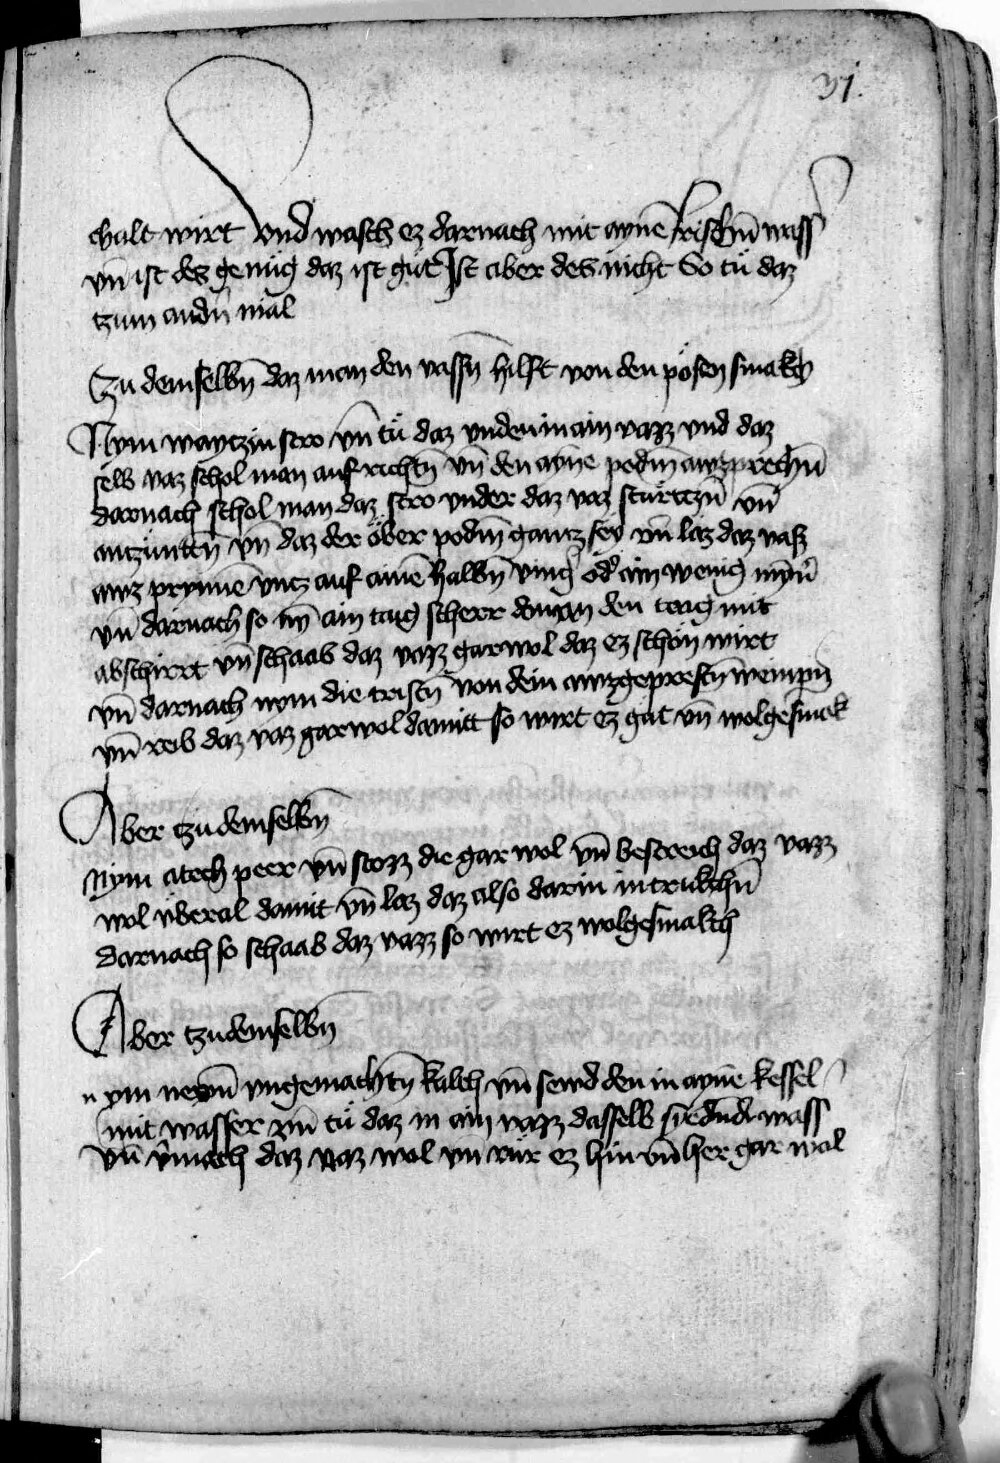 31.
chalt wirt Vnd wasch ez darnach mit ayne͂ frischn̄ wass͛
vn̄ ist des genüg daz ist güt Ist aber des nicht So tü daz
tzum andn͛ mal
Zu demselbn̄ daz man den vassn̄ hilft von den pösen smakch
Nym waytzin stro vn̄ tü daz vnden in ain vazz vnd daz
selb vaz schol man aufrichtn̄ vn̄ den ayne podm̄ awzprechn̄
darnach schol man daz stro vnder daz vaz stürttzn̄ vn̄
antzünttn̄ vn̄ daz der öber podm̄ gantz sey vn̄ laz daz vaz
awz prynne͂ vntz auf aine͂ halbn̄ ving͛ od͛ ain wenig myn͛
vn̄ darnach so ny͂ ain taug scherr den man den taig mit
abschirrt vn̄ schaab daz vazz gar wol daz ez schön wirt
vn̄ darnach nym die trestn̄ von dein awzgeprestn̄ weinpern̄
vn̄ reib daz vaz gar wol damitt so wirt ez gut vn̄ wolgesmak
Aber tzu demselbn̄
Nym atech peer vn̄ stozz die gar wol vn̄ bestreich daz vazz
wol überal damit vn̄ laz daz also darin intrukchn̄
darnach so schaab daz vazz so wirt ez wolgesmakch
Aber tzu demselbn̄
nym newn̄ vngemachtn̄ kalch vn̄ sewd den in ayne͂ kessel
mit wasser vn̄ tü daz in ain vazz dasselb siedund wass͛
vn̄ v͛mach daz vaz wol vn̄ rür ez hin vn̄ her gar wol